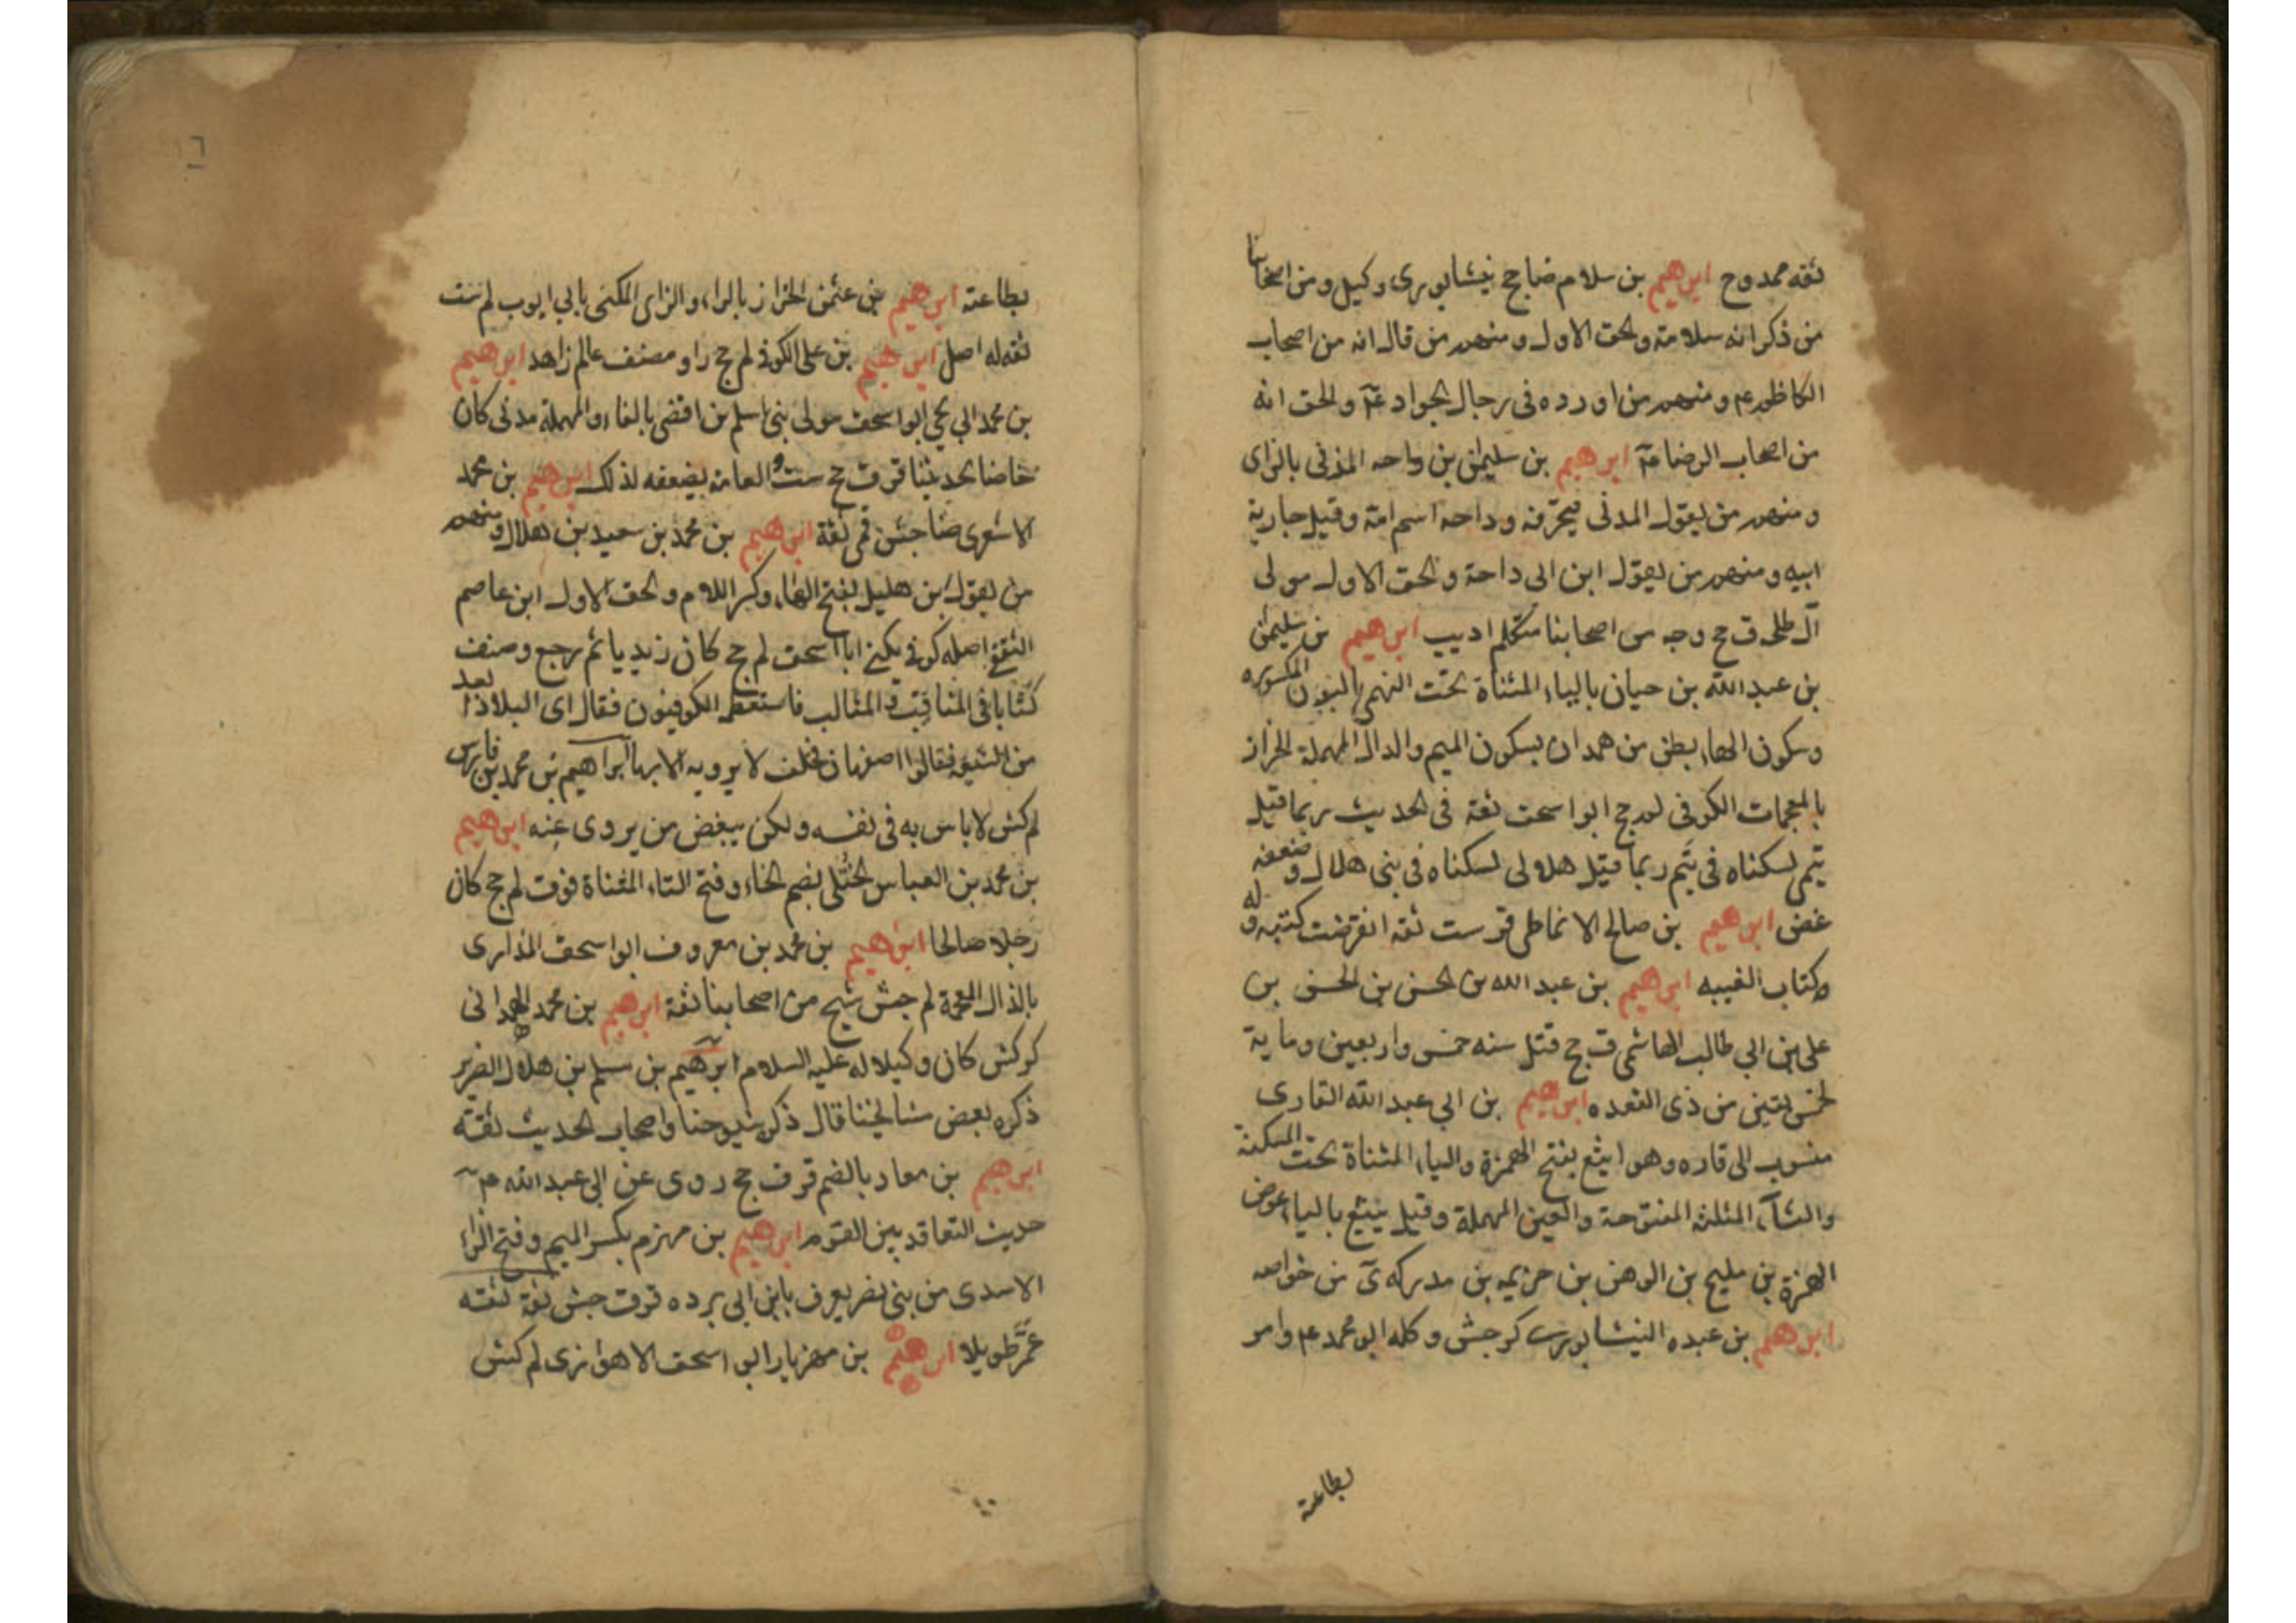 ثقه ممدوح ابرهيم بن سلام ضا جح نيشابورى وكيل ومن اصحابنا
من ذكر انه سلامة والحق الاول ومنهم من قال انه من اصحاب
الكاظم ع م ومنهم من اورده فى رجال الجواد عم والحق انه
من اصحاب الرضا عم ابرهيم بن سليمن بن داحه المزنى بالزاى
ومنهم من يقول المدنى فيحرفه وداحه اسم امة وقيل جارية
ابيه ومنهم من يقول ابن ابى داحة والحق الاول مولى
آل طلحى ق جح وجه من اصحابنا متكلم اديب ابرهيم بن سليمن
بن عبد الله بن حيان بالياء المثناة تحت النهمى بالنون المكسوره
وسكون الهاء بطن من همدان بسكون الميم والدال المهملة الخزاز
بالمعجمات الكوفى لم جح ابو اسحق ثقة فى الحديث ربما قيل
تيمى لسكناه فى تيم ربما قيل هلالى لسكناه فى بنى هلال وضعفه
غض ابرهيم بن صالح الانماطى قر ست ثقه انقرضت كتبه وله
كتاب الغيبه ابرهيم بن عبد الله بن الحسن بن الحسن بن
على بن ابى طالب الهاشمى ق جح قتل سنه خمس واربعين وماية
لخمس بقين من ذى القعده ابرهيم بن ابى عبد الله القارى
منسوب الى قاره وهو ايثع بفتح الهمزة والياء المثناة تحت المسكنة
والثاء المثلثه المفتوحة والعين المهملة وقيل ييثع بالياء عوض
الهمزة بن مليح بن الوهن بن خزيمه بن مدركه ى من خواصه
ابرهيم بن عبده النيشابورى كر جش وكله ابو محمد ع م وامر
بطاعته
بطاعته ابرهيم بن عثمن الخزاز بالراء والزاى المكنى بابى ايوب لم ست
ثقه له اصل ابرهيم بن على الكوفى لم جح راو مصنف عالم زاهد ابرهيم
بن محمد ابى يحيى ابو اسحق مولى بنى اسلم بن افضى بالفاء والمهملة مدنى كان
خاصا بحديثنا قر ق جح ست والعامة يضعفه لذلك ابرهيم بن محمد
الاشعرى ضا جش قمى ثقة ابرهيم بن محمد بن سعيد بن هلال ومنهم
من يقول بن هليل بفتح الهاء وكسر اللام والحق الاول ابن عاصم
الثقفى اصله كوفى يكنى ابا اسحق لم جح كان زيديا ثم رجع وصنف
كتابا فى المناقب والمثالب فاستعظمه الكوفيون فقال اى البلاد ابعد
من الشيعه فقالوا اصفهان فحلف لا يرويه الا بها ابراهيم بن محمد بن فارس
لم كش لا باس به فى نفسه ولكن ببعض من يروى عنه ابرهيم
بن محمد بن العباس الختلى بضم الخاء وفتح التاء المثناة فوق لم جح كان
رجلا صالحا ابرهيم بن محمد بن معروف ابو اسحق المذارى
بالذال المعجمة لم جش شيخ من اصحابنا ثقة ابرهيم بن محمد الهمدانى
كر كش كان وكيلا له عليه السلام ابرهيم بن مسلم بن هلال الضرير
ذكره بعض مشايخنا قال ذكر شيوخنا واصحاب الحديث ثقته
ابرهيم بن معاد بالضم قر ق جح روى عن ابى عبد الله عم
حديث التعاقد بين القوم ابرهيم بن مهزم بكسر الميم وفتح الزاء
الاسدى من بنى نصر يعرف بابن ابى برده ق ق جش ثقة ثقته
عمر طويلا ابرهيم بن مهزيار ابو اسحق الاهوازى لم كش